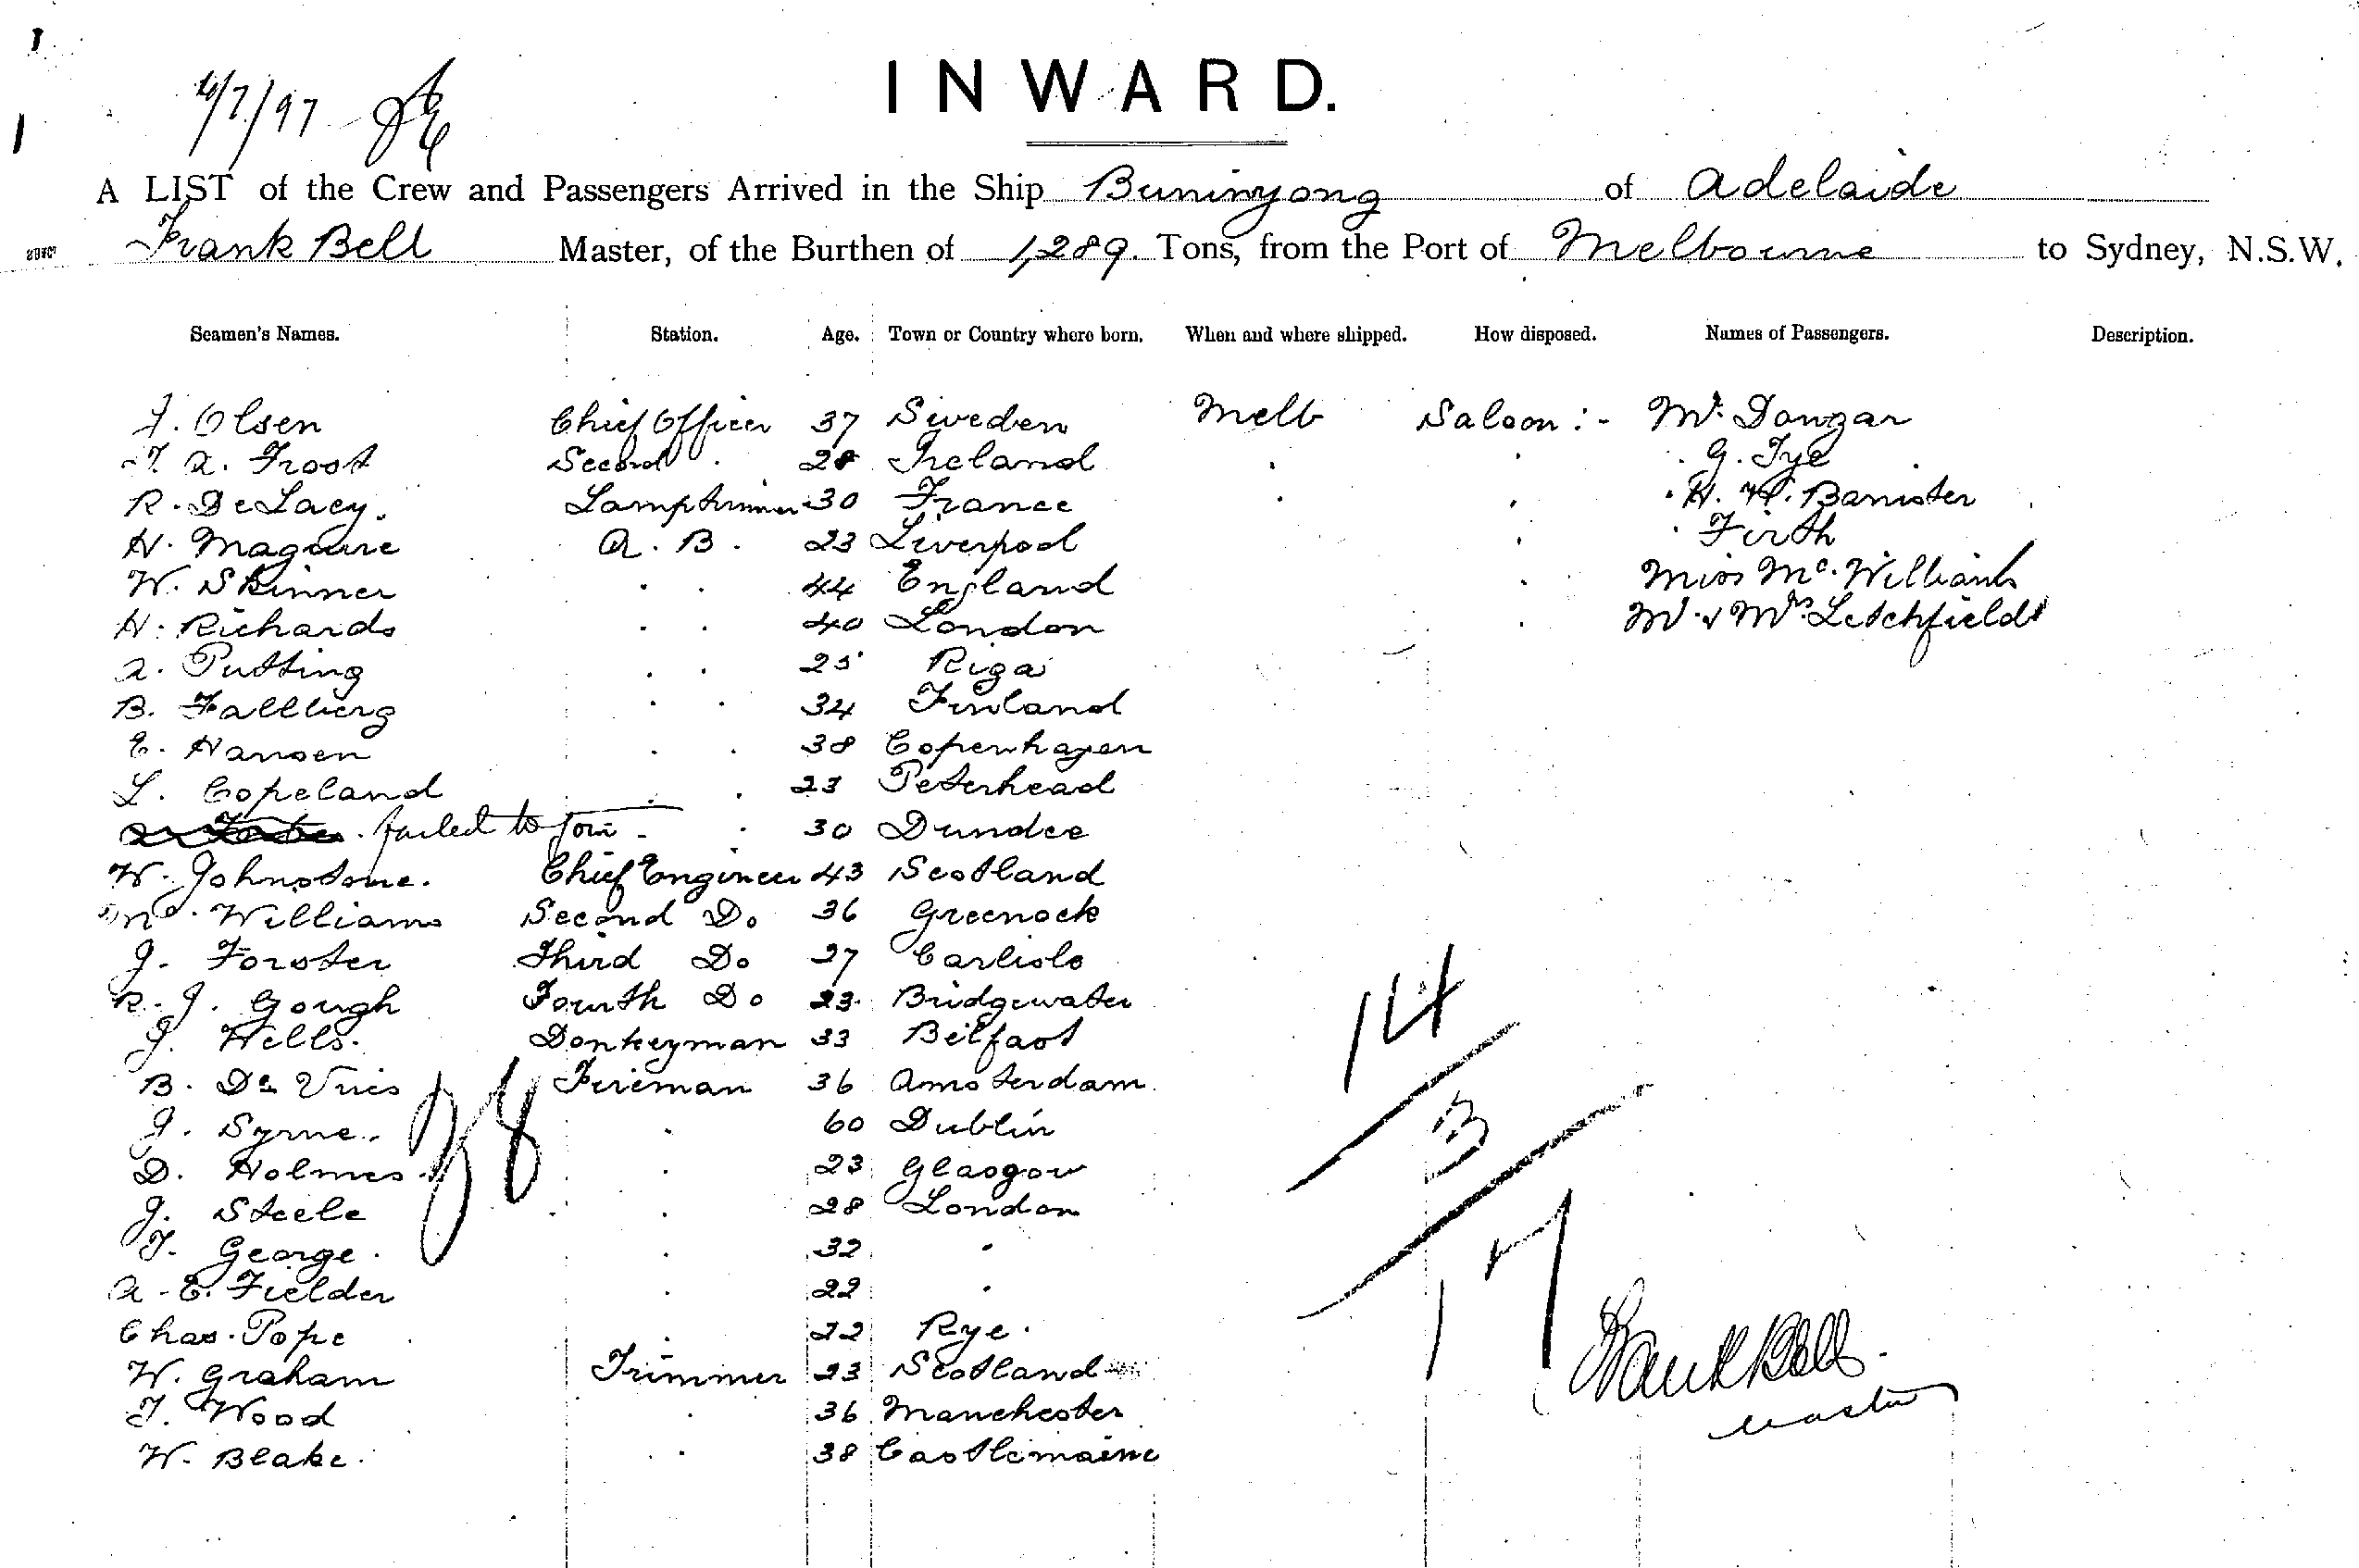 6/7/97
INWARD.
A LIST of the Crew and Passengers Arrived in the Ship Buninyong of Adelaide
Frank Bell Master, of the Burthen of 1,289. Tons, from the Port of Melbourne to Sydney, N.S.W.
Seamen's Names. Station. Age. Town or Country where born. When and where shipped. How disposed. Names of Passengers. Description.
J. Olsen Chief Officer 37 Sweden Melb Saloon :- Mr. Dongar
T. A. Frost Second . 28 Ireland . . . G. Tye
R. DeLacy. Lamptrimmer 30 France . . . H. W. Banister
H. Maguire A. B. 23 Liverpool . . Firth
W. Skinner . . 44 England . Miss Mc. Williams
H. Richards . . 40 London . Mr. & Mrs. Letchfield
A. Putting . . 25 Riga
B. Fallberg . . 34 Finland
E. Hansen . . 38 Copenhagen
L. Copeland . . 23 Peterhead
failed to join - . 30 Dundee
W. Johnstone. Chief Engineer 43 Scotland
Mc. Williams Second Do 36 Greenock
J. Forster Third Do 27 Carlisle
R. J. Gough Fourth Do 23 Bridgewater
J. Wells. Donkeyman 33 Belfast
B. De Vries Fireman 36 Amsterdam
J. Syrne. . 60 Dublin
D. Holmes . 23 Glasgow
J. Steele . 28 London
T. George . . 32 "
A. E. Fielder . 22 "
Chas. Pope . 22 Rye.
W. Graham Trimmer 23 Scotland
T. Wood . 36 Manchester
W. Blake . . 38 Castlemaine
38
14
3
17
Frank Bell.
Master